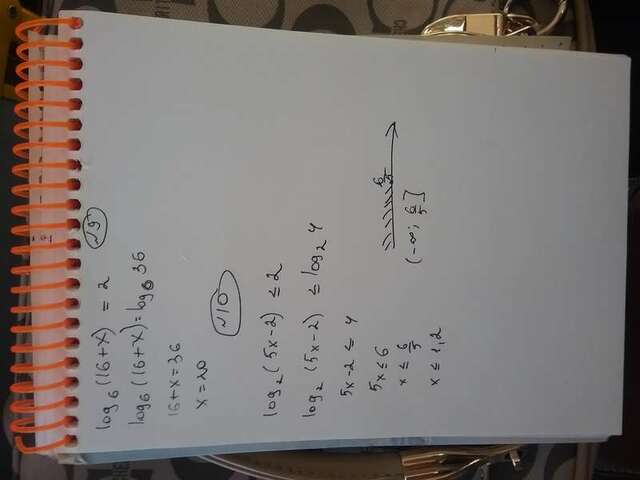 log₆(16+x) = 2 №9
log₆(16+x)=log₆36
16+x=36
x=20
№10
log₂(5x-2) ≤ 2
log₂(5x-2) ≤ log₂4
5x-2 ≤ 4
5x ≤ 6
x ≤ 6/5
x ≤ 1,2
6/5
(-∞; 6/5]